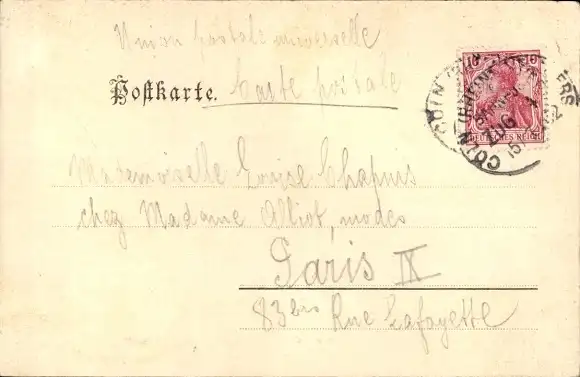 Union postale universelle
Postkarte. Carte postale
10 10
DEUTSCHES REICH
CÖLN (RHEIN)
ZUG
15
Mademoiselle Louise Chapuis
chez Madame Alliot, modes
Paris IX
83 bis Rue Lafayette